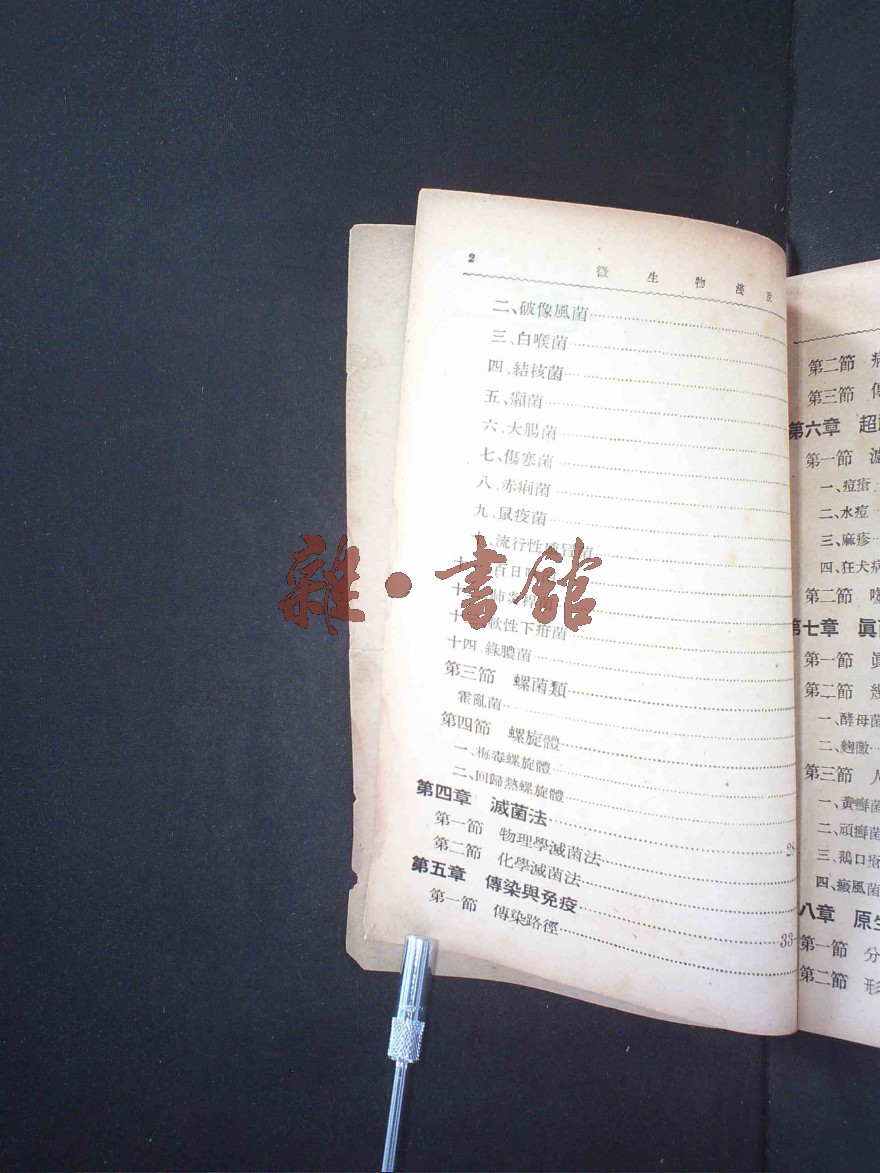 2 微生物淺說
二、破傷風菌
三、白喉菌
四、結核菌
五、癩菌
六、大腸菌
七、傷寒菌
八、赤痢菌
九、鼠疫菌
十、流行性感冒菌
百日
肺炎桿
軟性下疳菌
十四、綠膿菌
第三節 螺菌類
霍亂菌
第四節 螺旋體
一、梅毒螺旋體
二、回歸熱螺旋體
第四章 滅菌法
第一節 物理學滅菌法
第二節 化學滅菌法
第五章 傳染與免疫 33
第一節 傳染路徑
第二節
第三節
第六章
第一節
一、痘瘡
二、水痘
三、麻疹
四、狂犬病
第二節
第七章
第一節
第二節
一、酵母菌
二、麴黴
第三節 人
一、黃癬菌
二、頑癬菌
三、鵝口瘡
四、癜風菌
八章 原生
第一節 分
第二節 形
雜·書館